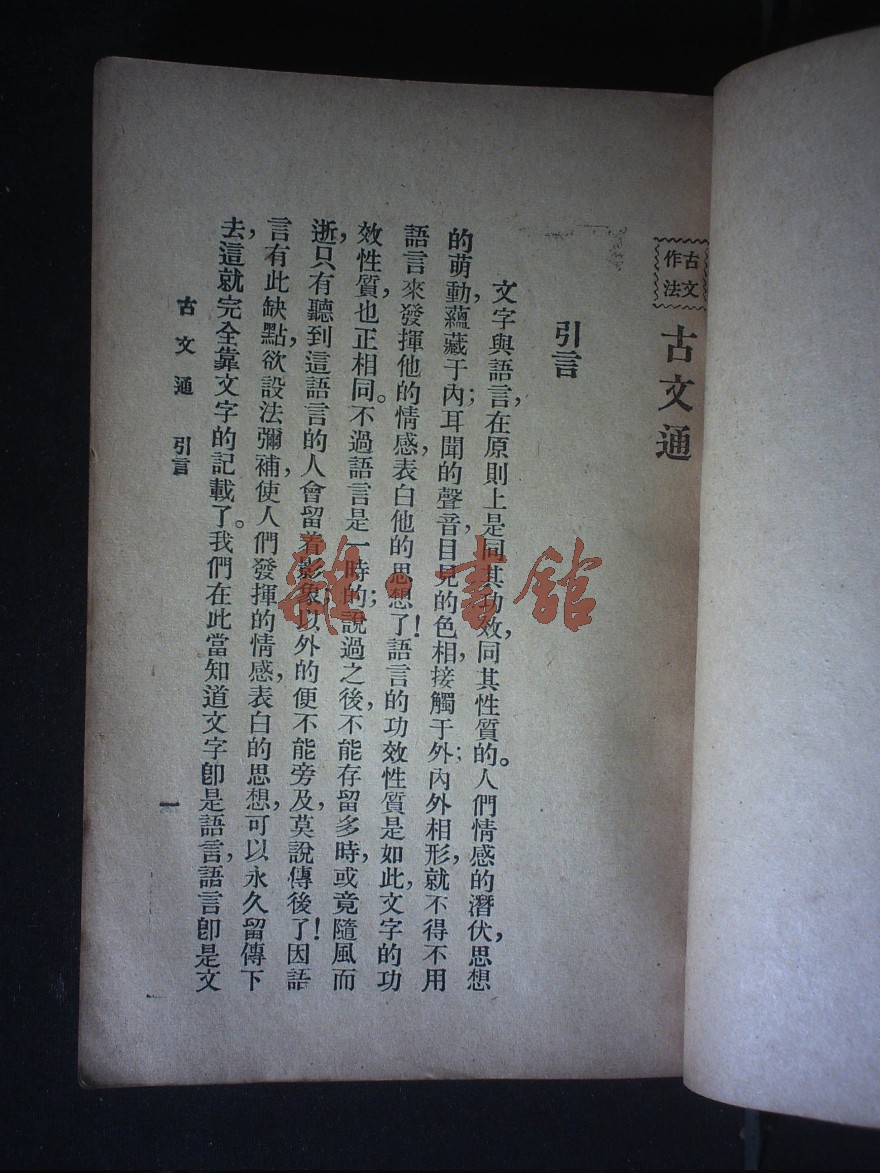 古文
作法
古文通
引言
文字與語言，在原則上是同其功效，同其性質的。人們情感的潛伏，思想
的萌動，蘊藏于內；耳聞的聲音，目見的色相，接觸于外；內外相形，就不得不用
語言來發揮他的情感，表白他的思想了！語言的功效性質是如此，文字的功
效性質也正相同。不過語言是一時的；說過之後，不能存留多時，或竟隨風而
逝，只有聽到這語言的人會留着影象；以外的便不能旁及，莫說傳後了！因語
言有此缺點，欲設法彌補，使人們發揮的情感，表白的思想，可以永久留傳下
去，這就完全靠文字的記載了。我們在此當知道文字卽是語言，語言卽是文
古文通　引言
一
雜·書館